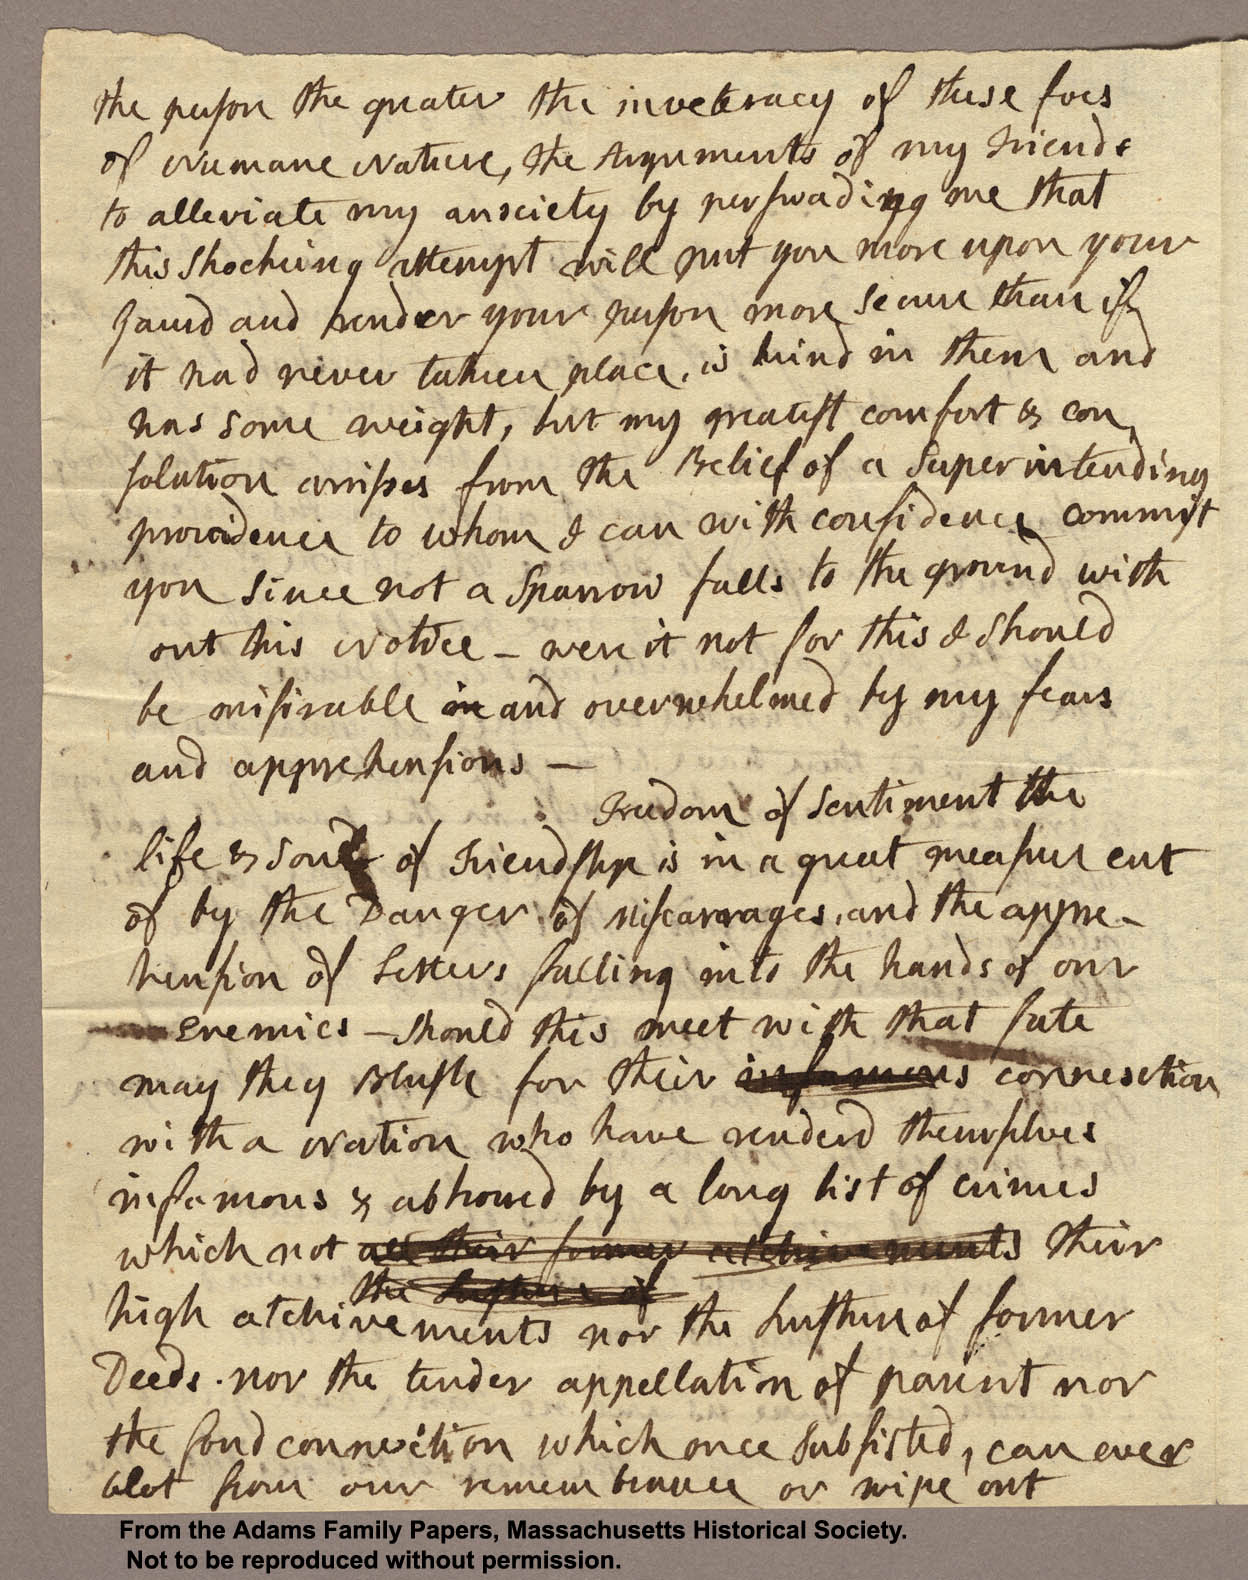 the person the greater the inveteracy of these foes
of Humane Nature, the Arguments of my Friends
to alleviate my anxiety by perswading me that
this Shocking attempt will put you more upon your
Gaurd and render your person more Secure than if
it had never taken place, is kind in them and
has some weight, but my greatest comfort & con
solution arrisses from the Belief of a Superintending
providence to whom I can with confidence commit
you Since not a Sparrow falls to the ground with
out his Notice — were it not for this I should
be misirable in and overwhelmed by my fears
and apprehensions —
Freedom of Sentiment the
life & Soul of Friendship is in a great measure cut
of by the Danger of miscarrages, and the appre-
hension of Letters falling into the hands of our
Enemies — should this meet with that fate
may they Blush for their infamous connexction
with a Nation who have renderd themselves
infamous & abhorred by a long list of crimes
which not all their former atchivements their
the lusture of
high atchivements nor the Lusture of former
Deeds. nor the tender appellation of parent nor
the fond connection which once Subsisted, can ever
blot from our remembrance or wipe out
From the Adams Family Papers, Massachusetts Historical Society.
Not to be reproduced without permission.